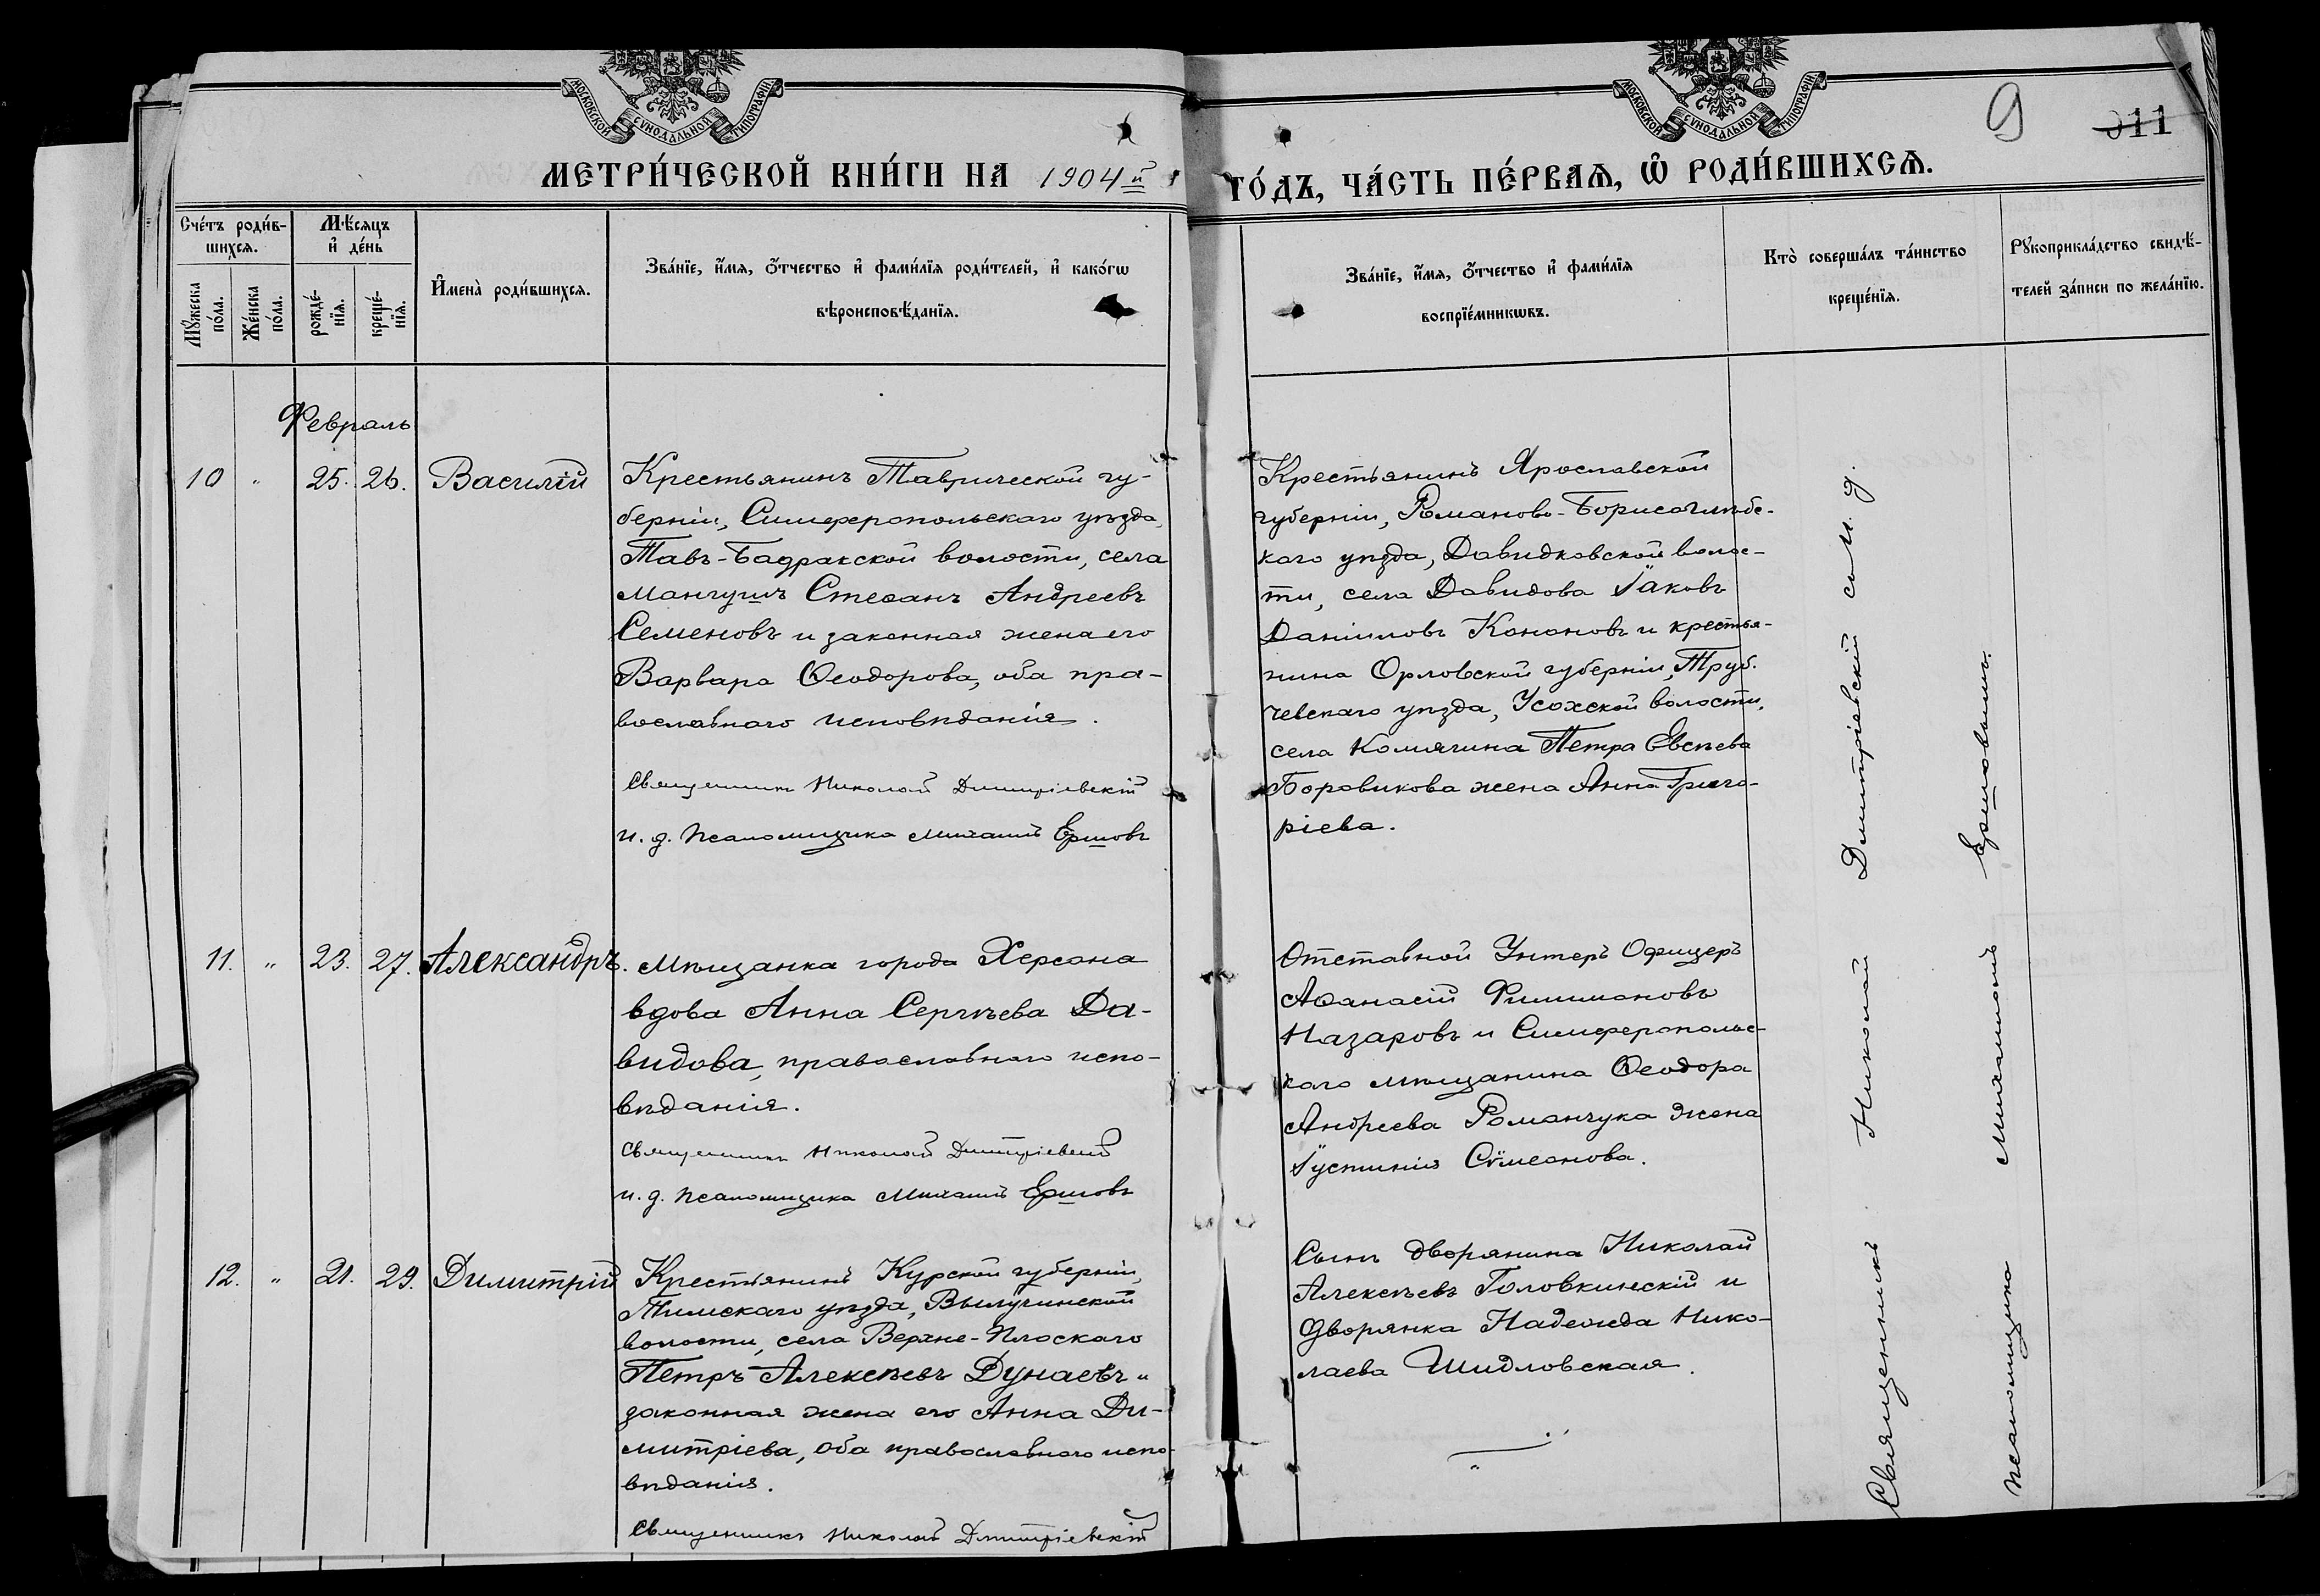 МОСКОВСКОЙ СѴНОДАЛЬНОЙ ТИПОГРАФІИ.
МОСКОВСКОЙ СѴНОДАЛЬНОЙ ТИПОГРАФІИ.
9 011
МЕТРИ́ЧЕСКОЙ КНИ́ГИ НА 1904й
ГО́ДЪ, ЧА́СТЬ ПЕ́РВАѦ, Ѽ РОДИ́ВШИХСѦ.
Сче́тъ роди́в-
шихсѧ.
Мꙋ́жеска по́ла.
Же́нска по́ла.
Мѣ́сѧцъ
и҆ де́нь
рожде́-
нїѧ.
креще́-
нїѧ.
И҆мена̀ роди́вшихсѧ.
Зва́нїе, и҆́мѧ, ѻ҆́тчество и҆ фами́лїѧ роди́телей, и҆ како́гѡ
вѣроисповѣ́данїѧ.
Зва́нїе, и҆́мѧ, ѻ҆́тчество и҆ фами́лїѧ
воспрїе́мникѡвъ.
Кто̀ соверша́лъ та́инство
креще́нїѧ.
Рꙋкоприкла́дство свидѣ́-
телей за́писи по жела́нїю.
Февраль
10 " 25. 26. Василій
Крестьянинъ Таврической гу-
берніи, Симферопольскаго уѣзда,
Тавъ-Бадракской волости, села
Мангушъ Стеѳанъ Андреевъ
Семеновъ и законная жена его
Варвара Ѳеодорова, оба пра-
вославнаго исповѣданія.
Священникъ Николай Димитріевскій
и. д. Псаломщика Михаилъ Ершовъ
Крестьянинъ Ярославской
губерніи, Романово-Борисоглѣбс-
каго уѣзда, Давидковской волос-
ти, села Давидова Іаковъ
Даніиловъ Кононовъ и крестья-
нина Орловской губерніи, Труб-
чевскаго уѣзда, Усохской волости,
села Комягина Петра Евсѣева
Боровикова жена Анна Григо-
ріева.
11. " 23. 27. Александръ.
Мѣщанка города Херсона
вдова Анна Сергѣева Да-
видова, православнаго испо-
вѣданія.
Священникъ Николай Димитріевскій
и. д. псаломщика Михаилъ Ершовъ
Отставной Унтеръ Офицеръ
Аѳанасій Филимоновъ
Назаровъ и Симферопольс-
каго мѣщанина Ѳеодора
Андреева Романчука жена
Іустинія Сѵмеонова.
12. " 21. 29. Димитрій
Крестьянинъ Курской губерніи,
Тимскаго уѣзда, Вылучинской
волости, села Верхне-Плоскаго
Петръ Алексѣевъ Дунаевъ и
законная жена его Анна Ди-
митріева, оба православнаго испо-
вѣданія.
Священникъ Николай Димитріевскій
Сынъ дворянина Николай
Алексѣевъ Головкинскій и
дворянка Надежда Нико-
лаева Шидловская.
Священникъ Николай Димитріевскій съ И. д.
псаломщика Михаиломъ Ершовымъ.